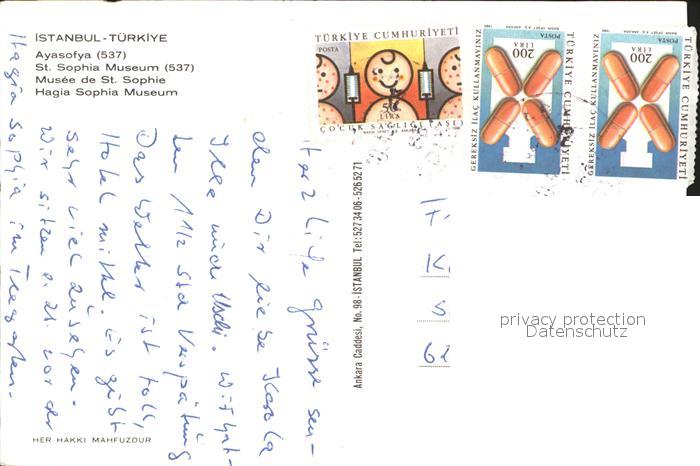 İSTANBUL-TÜRKİYE
Ayasofya (537)
St. Sophia Museum (537)
Musée de St. Sophie
Hagia Sophia Museum
TÜRKİYE CUMHURİYETİ
POSTA
50
LİRA
ÇOCUK SAĞLIĞI
GEREKSİZ İLAÇ KULLANMAYINIZ
200
LİRA
POSTA
TÜRKİYE CUMHURİYETİ
GEREKSİZ İLAÇ KULLANMAYINIZ
200
LİRA
POSTA
TÜRKİYE CUMHURİYETİ
Herzliche Grüsse sen-
den Dir liebe Karola
Ille und Uschi. Wir hat-
ten 1 1/2 Std Verspätung
Das Wetter ist toll,
Hotel mittel. Es gibt
sehr viel zu sehen.
Wir sitzen z. Zt. vor der
Hagia Sophia im Teegarten.
Ankara Caddesi, No. 98-İSTANBUL Tel: 5273406-5265271
F
K
S
62
privacy protection
Datenschutz
HER HAKKI MAHFUZDUR